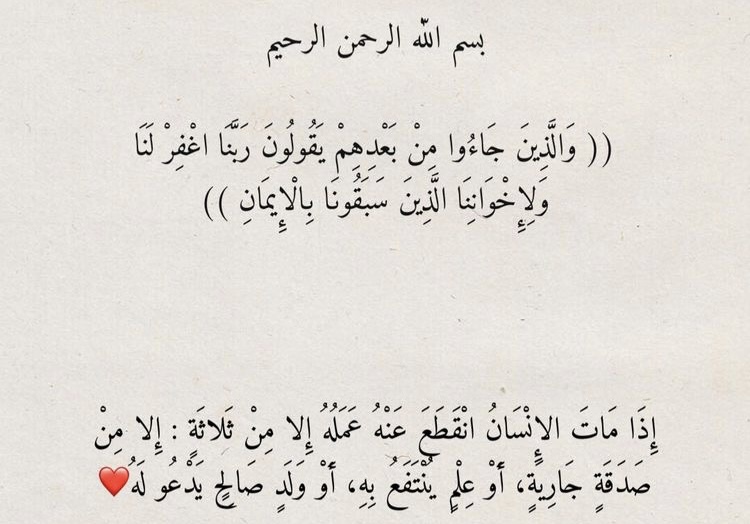 بسم الله الرحمن الرحيم
(( وَالَّذِينَ جَاءُوا مِنْ بَعْدِهِمْ يَقُولُونَ رَبَّنَا اغْفِرْ لَنَا
وَلِإِخْوَانِنَا الَّذِينَ سَبَقُونَا بِالْإِيمَانِ ))
إِذَا مَاتَ الإِنْسَانُ انْقَطَعَ عَنْهُ عَمَلُهُ إِلا مِنْ ثَلاثَةٍ : إِلا مِنْ
صَدَقَةٍ جَارِيَةٍ، أَوْ عِلْمٍ يُنْتَفَعُ بِهِ، أَوْ وَلَدٍ صَالِحٍ يَدْعُو لَهُ❤️